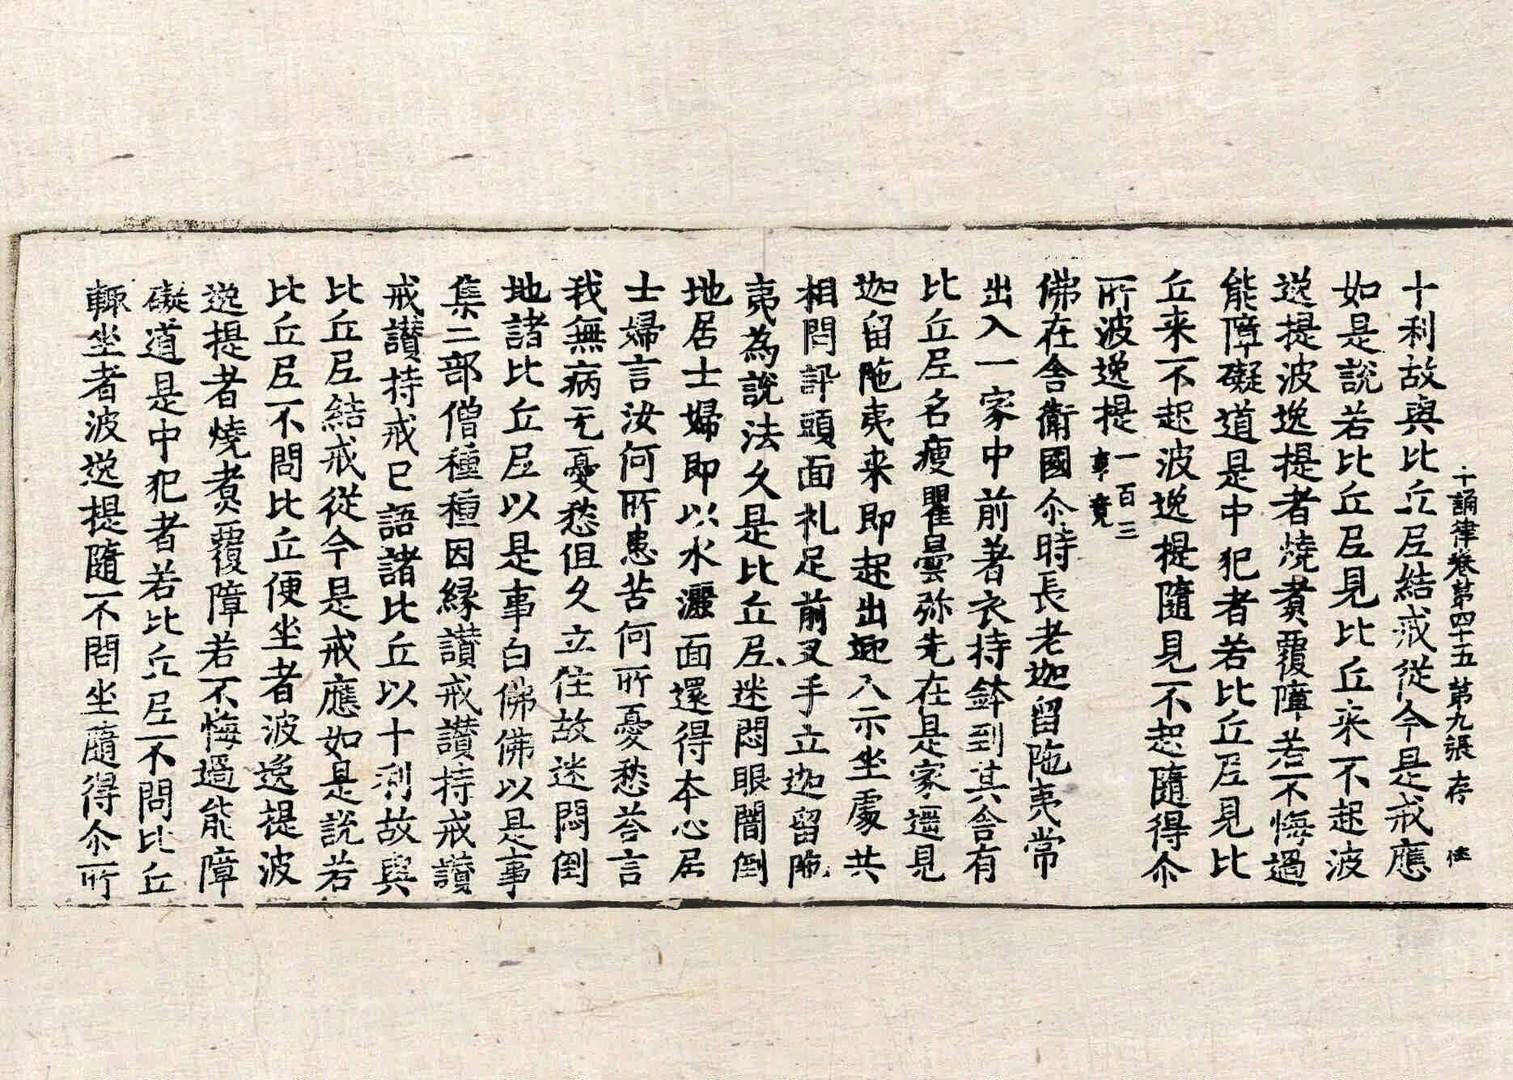 十誦律卷第四十五 第九張 存
十利故與比丘尼結戒從今是戒應
如是說若比丘尼見比丘来不起波
逸提波逸提者燒煑覆障若不悔過
能障礙道是中犯者若比丘尼見比
丘来不起波逸提隨見不起隨得尒
所波逸提一百三
事竟
佛在舍衛國尒時長老迦留陁夷常
出入一家中前著衣持鉢到其舍有
比丘尼名瘦瞿曇弥先在是家遥見
迦留陁夷来即起出迎入示坐處共
相問訊頭面礼足前叉手立迦留陁
夷為說法久是比丘尼迷悶眼闇倒
地居士婦即以水灑面還得本心居
士婦言汝何所患苦何所憂愁荅言
我無病无憂愁但久立住故迷悶倒
地諸比丘尼以是事白佛佛以是事
集二部僧種種因緣讃戒讃持戒讃
戒讃持戒已語諸比丘以十利故與
比丘尼結戒從今是戒應如是說若
比丘尼不問比丘便坐者波逸提波
逸提者燒煑覆障若不悔過能障
礙道是中犯者若比丘尼不問比丘
輙坐者波逸提隨不問坐隨得尒所